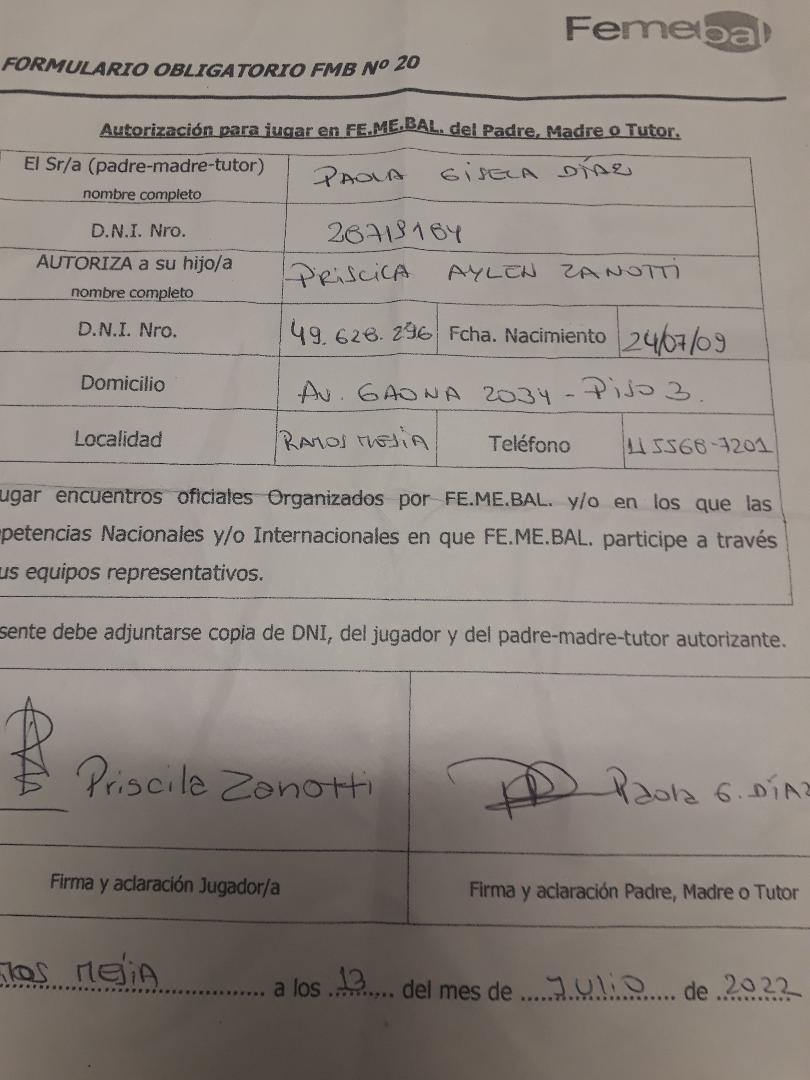 Femebal
FORMULARIO OBLIGATORIO FMB Nº 20
Autorización para jugar en FE.ME.BAL. del Padre, Madre o Tutor.
El Sr/a (padre-madre-tutor) PAOLA GISELA DÍAZ
nombre completo
D.N.I. Nro. 28719164
AUTORIZA a su hijo/a PRISCILA AYLEN ZANOTTI
nombre completo
D.N.I. Nro. 49.628.296 Fcha. Nacimiento 24/07/09
Domicilio AV. GAONA 2034 - PISO 3.
Localidad RAMOS MEJÍA Teléfono 11 5568-7201
ugar encuentros oficiales Organizados por FE.ME.BAL. y/o en los que las
petencias Nacionales y/o Internacionales en que FE.ME.BAL. participe a través
us equipos representativos.
sente debe adjuntarse copia de DNI, del jugador y del padre-madre-tutor autorizante.
Priscila Zanotti Paola G. DÍAZ
Firma y aclaración Jugador/a Firma y aclaración Padre, Madre o Tutor
MOS MEJÍA a los 13 del mes de JULIO de 2022